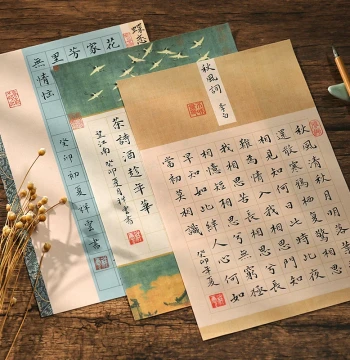 秋風詞 李白
秋風清秋月明落葉聚
還散寒鴉棲復驚相思
相見知何日此時此夜
難為情入我相思門知
我相思苦長相思兮長
相憶短相思兮無窮極
早知如此絆人心何如
當初莫相識
癸卯年夏
茶詩酒趁年華
望江南 癸卯夏月書
蝶戀
花家芳里
無情
癸卯初夏書